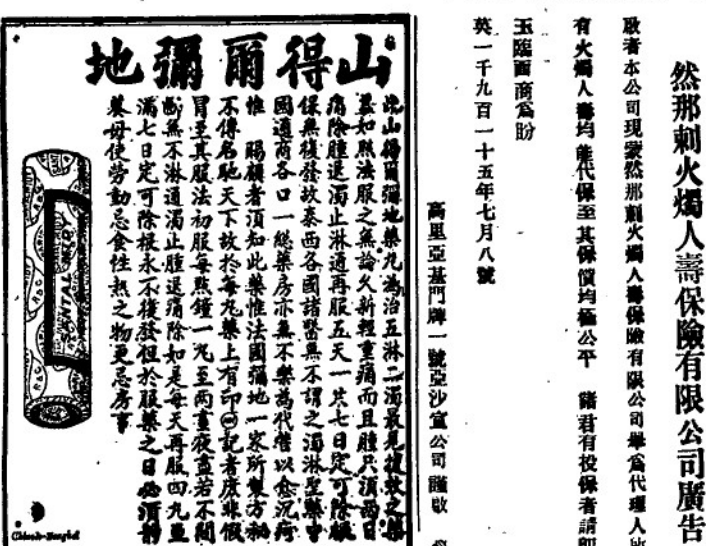 然那刺火燭人壽保險有限公司廣告
啟者本公司現蒙然那刺火燭人壽保險有限公司舉爲代理人
有火燭人壽均能代保至其保價均極公平 諸君有投保者請即
玉臨面商爲盼
英一千九百一十五年七月八號
高里亞基門牌一號亞沙宣公司謹啟
山得爾彌地
此山得爾彌地藥丸為治五淋二濁最見復效之藥
若如照法服之無論久新輕重痛而且腫只須兩日
痛除腫退濁止淋通再服五天一共七日定可除根
保無復發故泰西各國諸醫無不謂之濁淋聖藥中
國通商各口一總藥房亦無不樂為代售以愈沉疴
惟 賜顧者須知此藥惟法國彌地一家所製方秘
不傳名馳天下故於每丸藥上有印 記者庶非假
冒至其服法初服每點鐘一丸至兩晝夜盡若不間
斷無不淋通濁止腫退痛除如是每天再服四九
滿七日定可除根永不復發但於服藥之日必須
養毋使勞動忌食性熱之物更忌房事
SANTAL MIDY